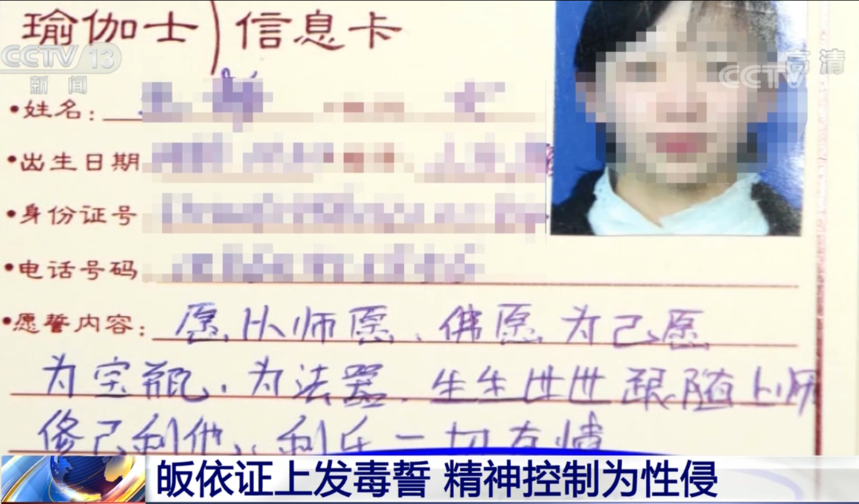 瑜伽士）信息卡
CCTV 13
新闻
CCTV 高清
•姓名：
•出生日期
•身份证号
•电话号码
•愿誓内容：愿从师愿、佛愿为己愿
为宝瓶、为法器、生生世世跟随上师
修己利他、利乐一切有情
皈依证上发毒誓 精神控制为性侵